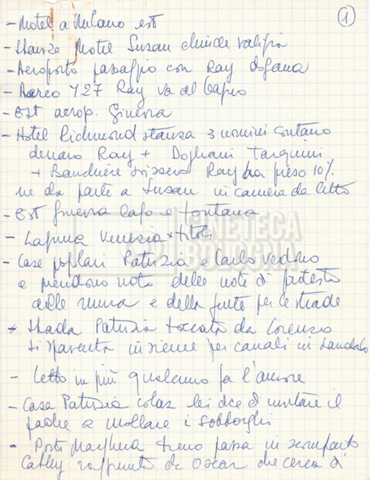 1
- Motel a Milano est
- Stanze Motel Susan chiude valigia
- Aeroporto passaggio con Ray dogana
- Aereo 727 Ray va al bagno
- Est aerop. Ginevra
- Hotel Richmond stanza 3 uomini contano
denaro Ray + Dogliani Tarquini
+ Bandiera svizzera Ray ha preso 10%
ne da parte a Susan in camera da letto
- Est Ginevra lago e fontana
- Laguna Venezia + titoli
- Case popolari Patrizia e Carlo vedono
e prendono nota delle note di protesta
delle mura e della gente per le strade
* Strada Patrizia toccata da Lorenzo
si spaventa insieme per canali in
- Letto in più qualcuno fa l'amore
- Casa Patrizia colaz lei dice di invitare il
padre a mollare i sobborghi
- Porto Marghera treno passa in scomparto
Cathy raggiunta da Oscar che cerca di
CINETECA
BOLOGNA